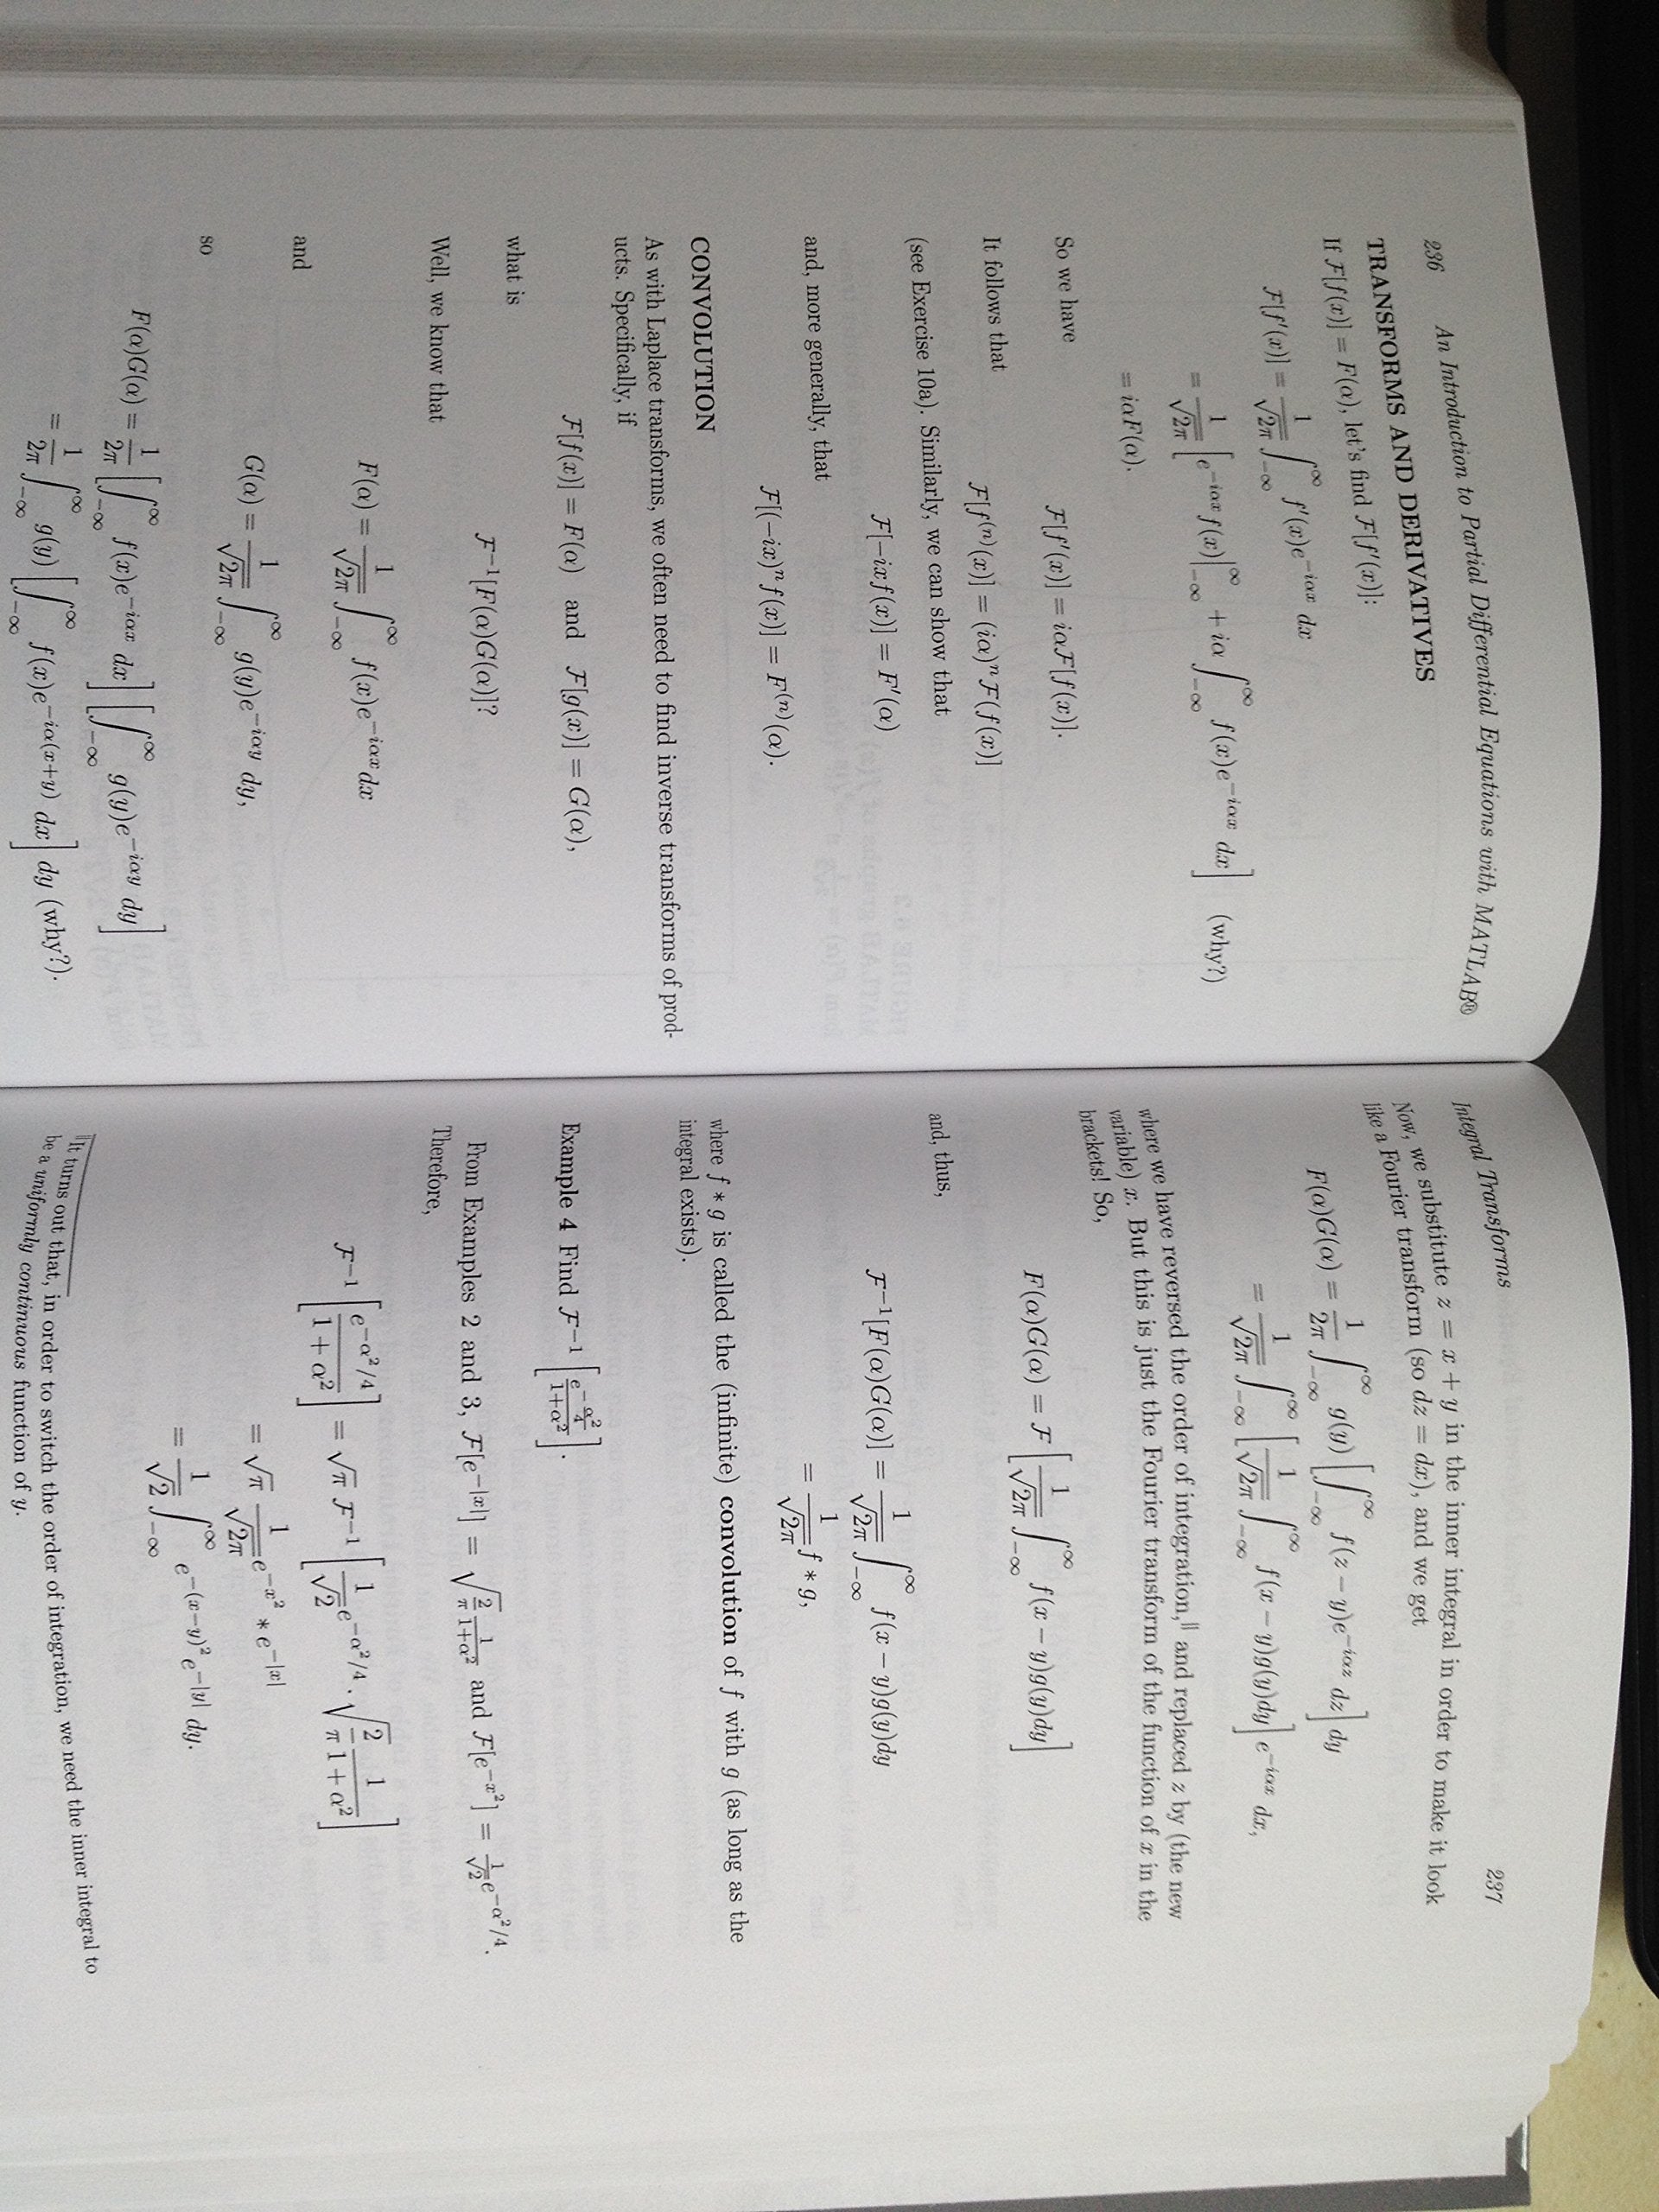 236 An Introduction to Partial Differential Equations with MATLAB®
TRANSFORMS AND DERIVATIVES
If F[f(x)] = F(α), let's find F[f′(x)]:
F[f′(x)] = 1/√2π ∫_{-∞}^{∞} f′(x)e^{-iαx} dx
= 1/√2π [e^{-iαx} f(x)|_{-∞}^{∞} + iα ∫_{-∞}^{∞} f(x)e^{-iαx} dx] (why?)
= iαF(α).
So we have
F[f′(x)] = iαF[f(x)].
It follows that
F[f^{(n)}(x)] = (iα)^n F(f(x)]
(see Exercise 10a). Similarly, we can show that
F[−ixf(x)] = F′(α)
and, more generally, that
F[(−ix)^n f(x)] = F^{(n)}(α).
CONVOLUTION
As with Laplace transforms, we often need to find inverse transforms of prod-
ucts. Specifically, if
F[f(x)] = F(α) and F[g(x)] = G(α),
what is
F^{-1}[F(α)G(α)]?
Well, we know that
F(α) = 1/√2π ∫_{-∞}^{∞} f(x)e^{-iαx} dx
and
G(α) = 1/√2π ∫_{-∞}^{∞} g(y)e^{-iαy} dy,
so
F(α)G(α) = 1/2π [∫_{-∞}^{∞} f(x)e^{-iαx} dx] [∫_{-∞}^{∞} g(y)e^{-iαy} dy]
= 1/2π ∫_{-∞}^{∞} g(y) [∫_{-∞}^{∞} f(x)e^{-iα(x+y)} dx] dy (why?).
Integral Transforms 237
Now, we substitute z = x + y in the inner integral in order to make it look
like a Fourier transform (so dz = dx), and we get
F(α)G(α) = 1/2π ∫_{-∞}^{∞} g(y) [∫_{-∞}^{∞} f(z − y)e^{-iαz} dz] dy
= 1/√2π ∫_{-∞}^{∞} [1/√2π ∫_{-∞}^{∞} f(x − y)g(y)dy] e^{-iαx} dx,
where we have reversed the order of integration,‖ and replaced z by (the new
variable) x. But this is just the Fourier transform of the function of x in the
brackets! So,
F(α)G(α) = F [1/√2π ∫_{-∞}^{∞} f(x − y)g(y)dy]
and, thus,
F^{-1}[F(α)G(α)] = 1/√2π ∫_{-∞}^{∞} f(x − y)g(y)dy
= 1/√2π f * g,
where f * g is called the (infinite) convolution of f with g (as long as the
integral exists).
Example 4 Find F^{-1} [e^{-α²/4}/(1+α²)].
From Examples 2 and 3, F[e^{-|x|}] = √(2/π) 1/(1+α²) and F[e^{-x²}] = 1/√2 e^{-α²/4}.
Therefore,
F^{-1} [e^{-α²/4}/(1 + α²)] = √π F^{-1} [1/√2 e^{-α²/4} · √(2/π) 1/(1 + α²)]
= √π 1/√2π e^{-x²} * e^{-|x|}
= 1/√2 ∫_{-∞}^{∞} e^{-(x−y)²} e^{-|y|} dy.
‖It turns out that, in order to switch the order of integration, we need the inner integral to
be a uniformly continuous function of y.